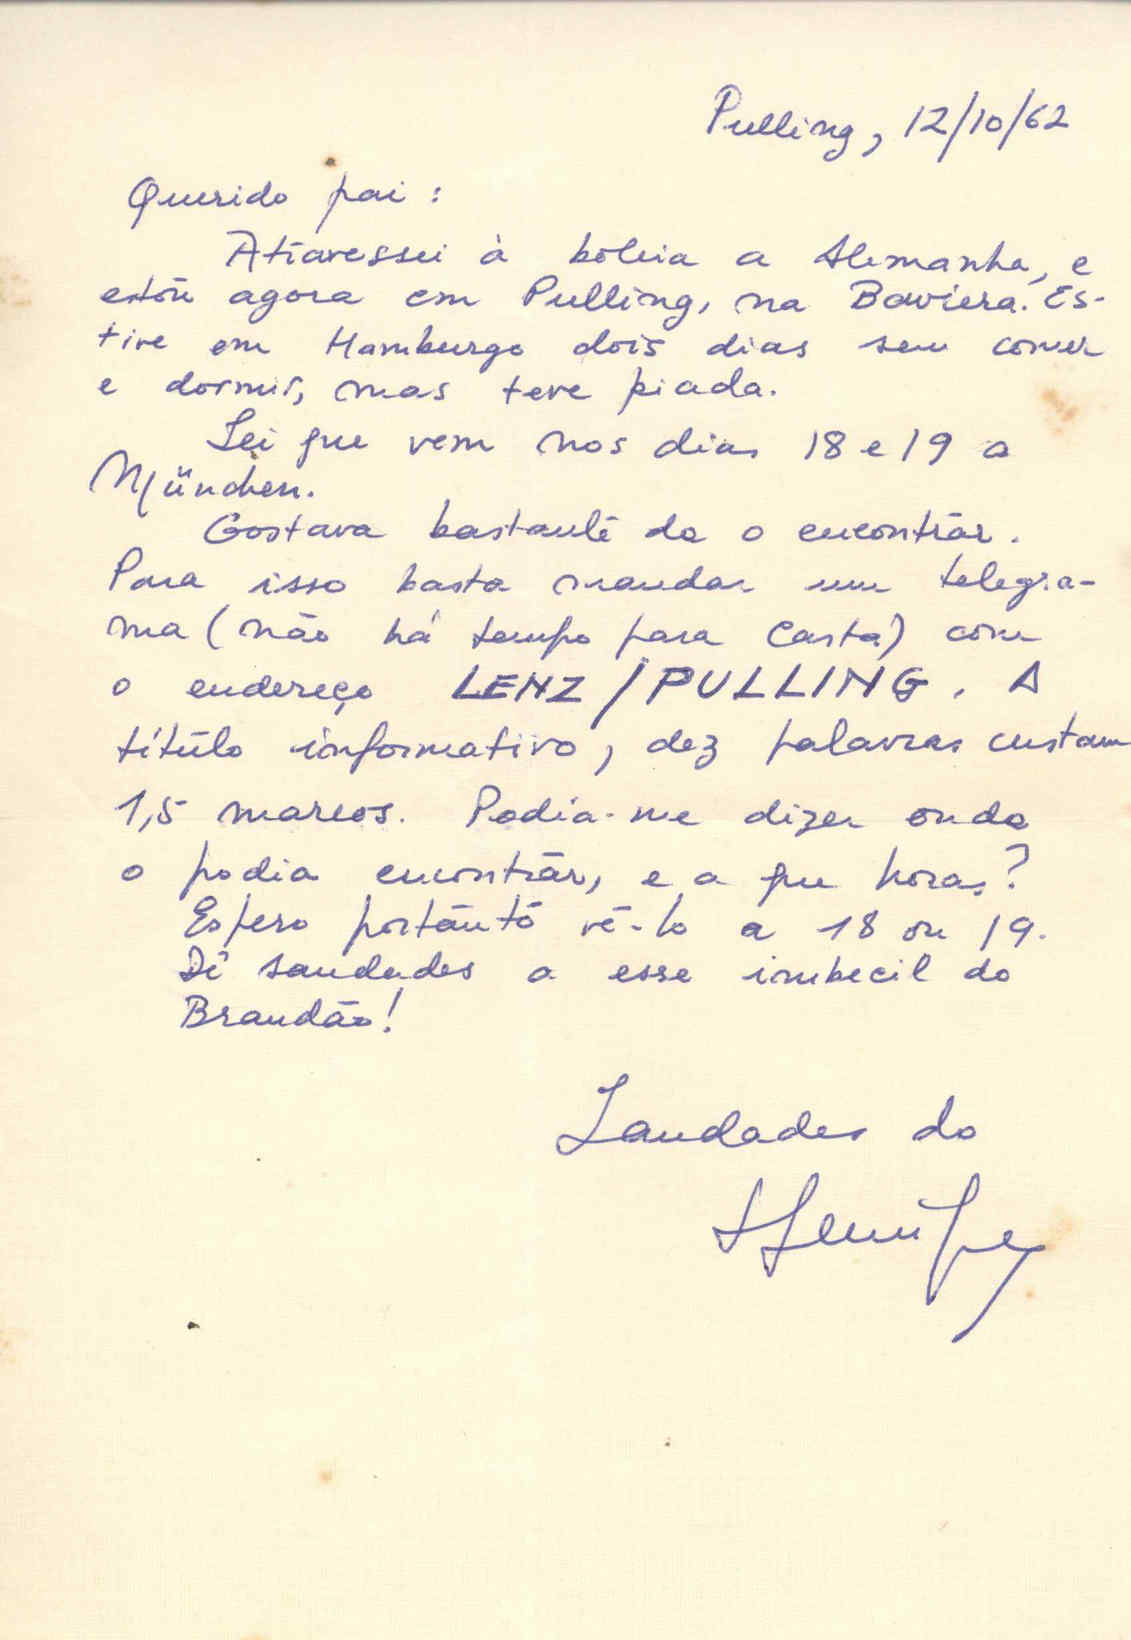 Pulling, 12/10/62
Querido pai:
Atravessei à boleia a Alemanha, e
estou agora em Pulling, na Baviera. Es-
tive em Hamburgo dois dias sem comer
e dormir, mas teve piada.
Sei que vem nos dias 18 e 19 a
München.
Gostava bastante de o encontrar.
Para isso basta mandar um telegra-
ma (não há tempo para carta) com
o endereço LENZ/PULLING. A
título informativo, dez palavras custam
1,5 marcos. Podia-me dizer onde
o podia encontrar, e a que horas?
Espero portanto vê-lo a 18 ou 19.
Dê saudades a esse imbecil do
Brandão!
Saudades do